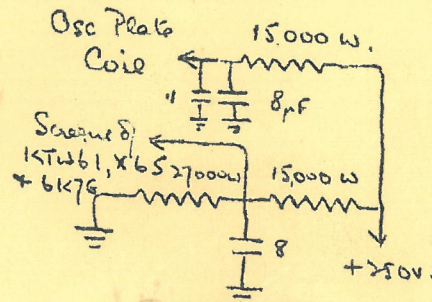 Osc Plate
Coil
15.000 W.
.1
8μF
Screens of
KTW61, X65
+ 6K7G
27000W
15,000 W
8
+250V.